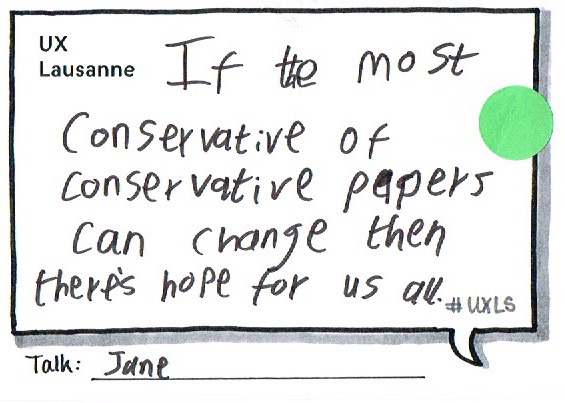 UX
Lausanne
If the most
Conservative of
conservative papers
can change then
there's hope for us all.
#UXLS
Talk: Jane